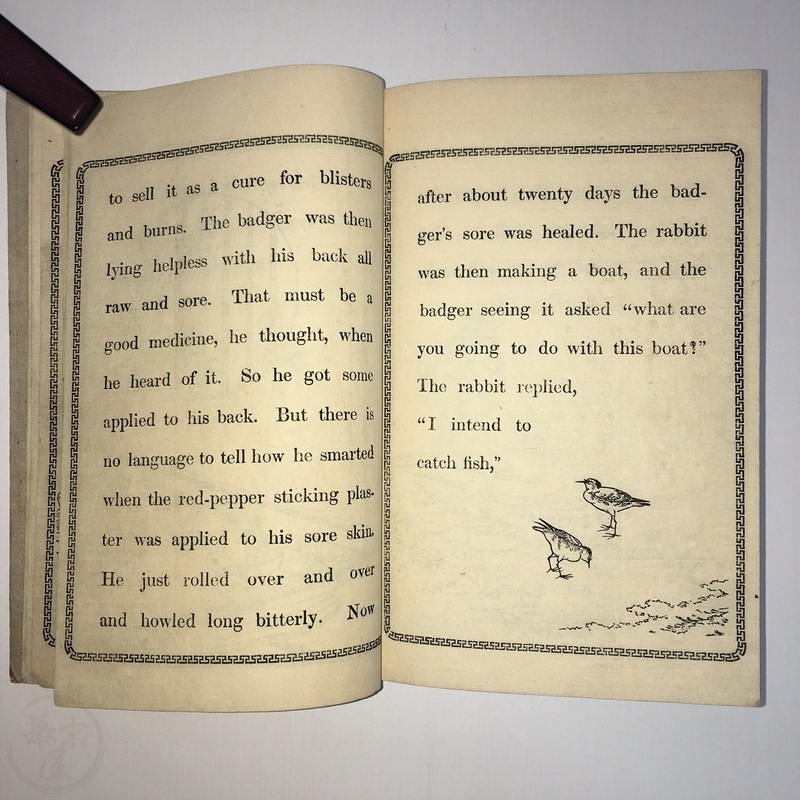 to sell it as a cure for blisters
and burns. The badger was then
lying helpless with his back all
raw and sore. That must be a
good medicine, he thought, when
he heard of it. So he got some
applied to his back. But there is
no language to tell how he smarted
when the red-pepper sticking plas-
ter was applied to his sore skin.
He just rolled over and over
and howled long bitterly. Now
after about twenty days the bad-
ger's sore was healed. The rabbit
was then making a boat, and the
badger seeing it asked “what are
you going to do with this boat?”
The rabbit replied,
“I intend to
catch fish,”